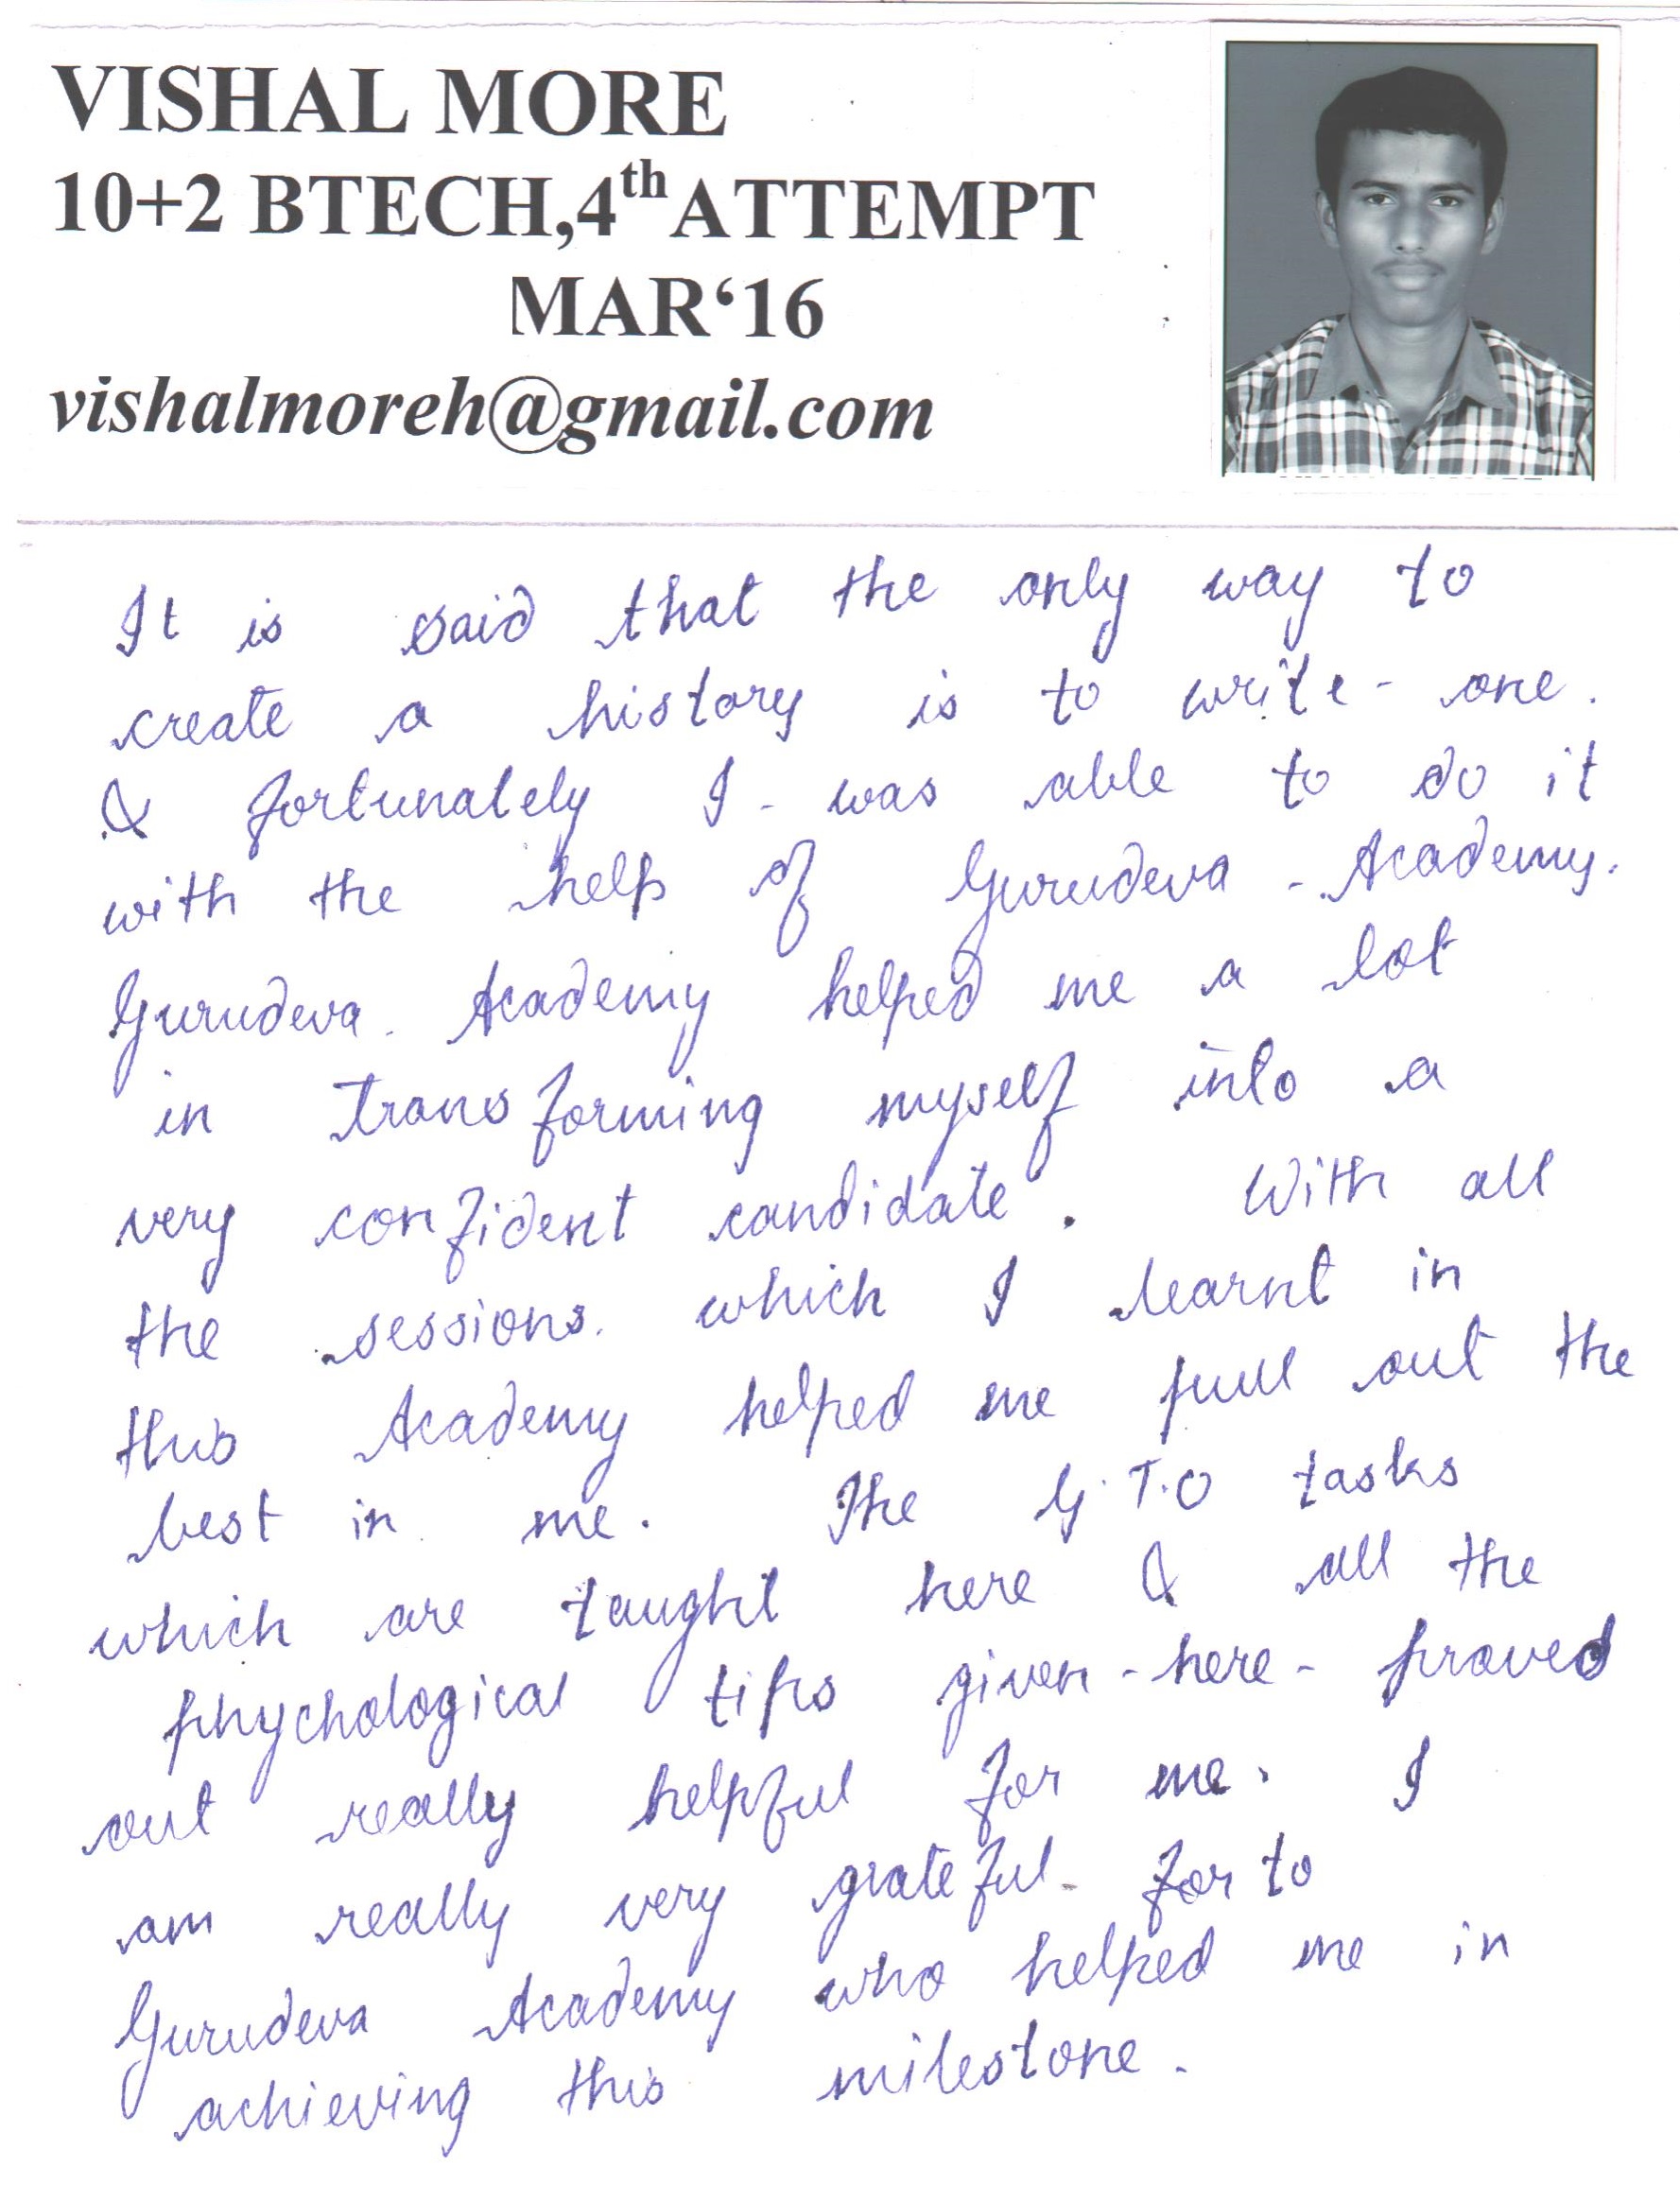 VISHAL MORE
10+2 BTECH,4th ATTEMPT
MAR‘16
vishalmoreh@gmail.com
It is said that the only way to
create a history is to write - one.
& fortunately I - was able to do it
with the help of Gurudeva - Academy.
Gurudeva. Academy helped me a lot
in transforming myself into a
very confident candidate. With all
the sessions. which I learnt in
this Academy helped me pull out the
best in me. The G.T.O tasks
which are taught here & all the
phychological tips given - here - proved
out really helpful for me. I
am really very grateful - for to
Gurudeva Academy who helped me in
achieving this milestone.